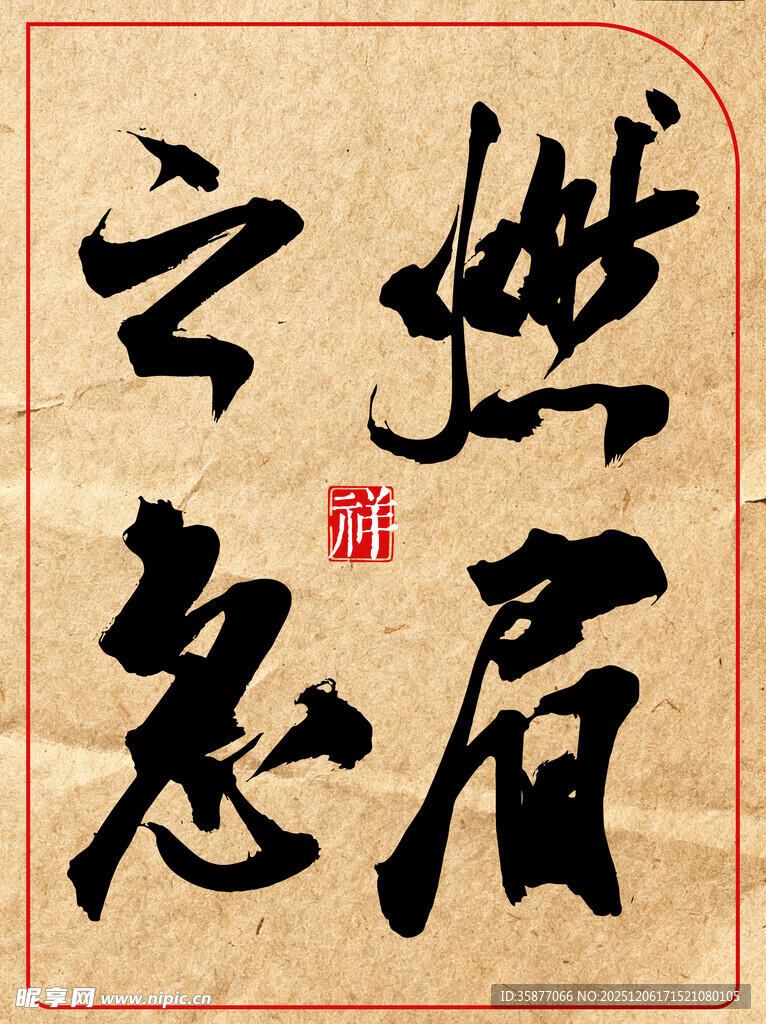 燃眉
之急
祥
昵享网 www.nipic.cn
ID:35877066 NO:20251206171521080105